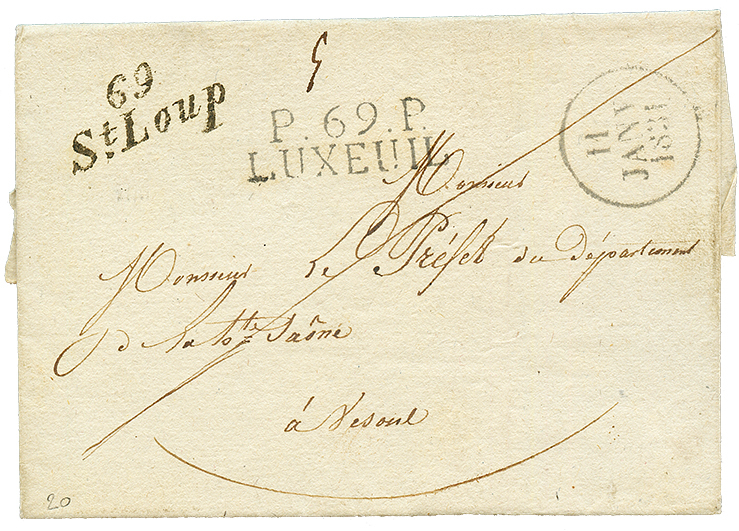 69
St. Loup
P. 69. P.
LUXEUIL
11
JANV
Monsieur
Monsieur Le Préfet du Département
de la hte Saône
à Vesoul
20